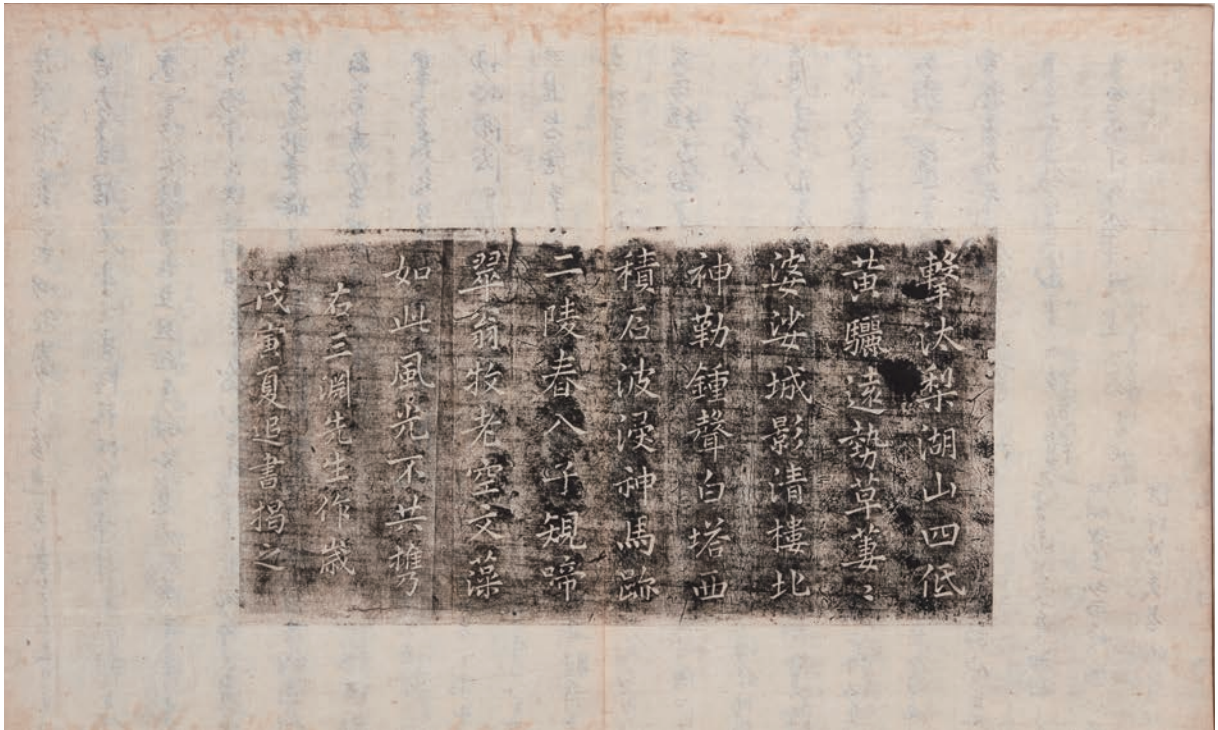 擊汰梨湖山四低
黃驪遠勢草萋〻
婆娑城影清樓北
神勒鍾聲白塔西
積石波浸神馬跡
二陵春入子規啼
翠翁牧老空文藻
如此風光不共携
右三淵先生作歲
戊寅夏追書揭之